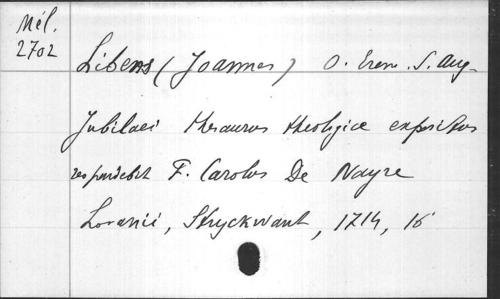 Mél.
2702
Libens (Joannes) O. Erem. S. Aug.
Jubilaei thesaurus theologice expositus
respondebit F. Carolus De Nayre
Lovanii, Stryckwant, 1714, 16